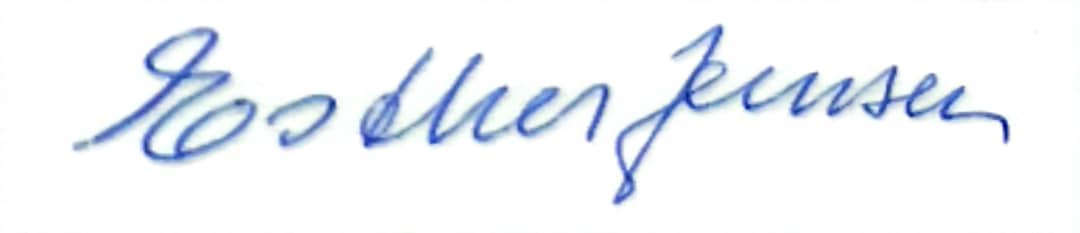 Esther Jensen